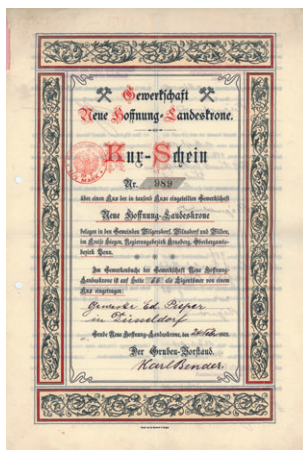 Gewerkschaft
Neue Hoffnung-Landeskrone.
Kux-Schein
Nr. 989
über einen Kux der in tausend Kuxe eingeteilten Gewerkschaft
Neue Hoffnung-Landeskrone
belegen in den Gemeinden Wilgersdorf, Wilnsdorf und Wilden,
im Kreise Siegen, Regierungsbezirk Arnsberg, Oberbergamts-
bezirk Bonn.
Im Gewerkenbuche der Gewerkschaft Neue Hoffnung-
Landeskrone ist auf Seite als Eigentümer von einem
Kux eingetragen:
Gewerke Ed. Pieper
in Düsseldorf
Grube Neue Hoffnung-Landeskrone, den
Der Gruben-Vorstand.
Karl Bender.